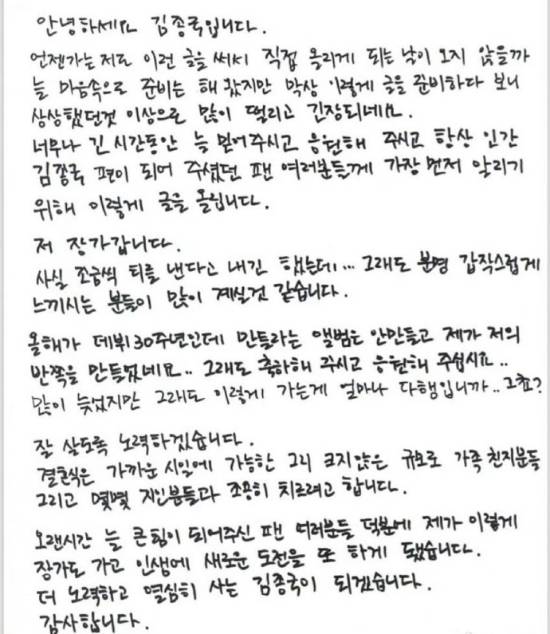 안녕하세요 김종국입니다.
언젠가는 저도 이런 글을 써서 직접 올리게 되는 날이 오지 않을까
늘 마음속으로 준비는 해 왔지만 막상 이렇게 글을 준비하다 보니
상상했던것 이상으로 많이 떨리고 긴장되네요.
너무나 긴 시간동안 늘 믿어주시고 응원해 주시고 항상 인간
김종국 편이 되어 주셨던 팬 여러분들께 가장 먼저 알리기
위해 이렇게 글을 올립니다.
저 장가갑니다.
사실 조금씩 티를 낸다고 내긴 했는데... 그래도 분명 갑작스럽게
느끼시는 분들이 많이 계실건 같습니다.
올해가 데뷔30주년인데 만들라는 앨범은 안만들고 제가 저의
반쪽을 만들었네요.. 그래도 축하해 주시고 응원해 주십시요..
많이 늦었지만 그래도 이렇게 가는게 얼마나 다행입니까.. 그쵸?
잘 살도록 노력하겠습니다.
결혼식은 가까운 시일에 가능한 그리 크지않은 규모로 가족 친지분들
그리고 몇몇 지인분들과 조용히 치르려고 합니다.
오랜시간 늘 큰 힘이 되어주신 팬 여러분들 덕분에 제가 이렇게
장가도 가고 인생에 새로운 도전을 또 하게 됐습니다.
더 노력하고 열심히 사는 김종국이 되겠습니다.
감사합니다.